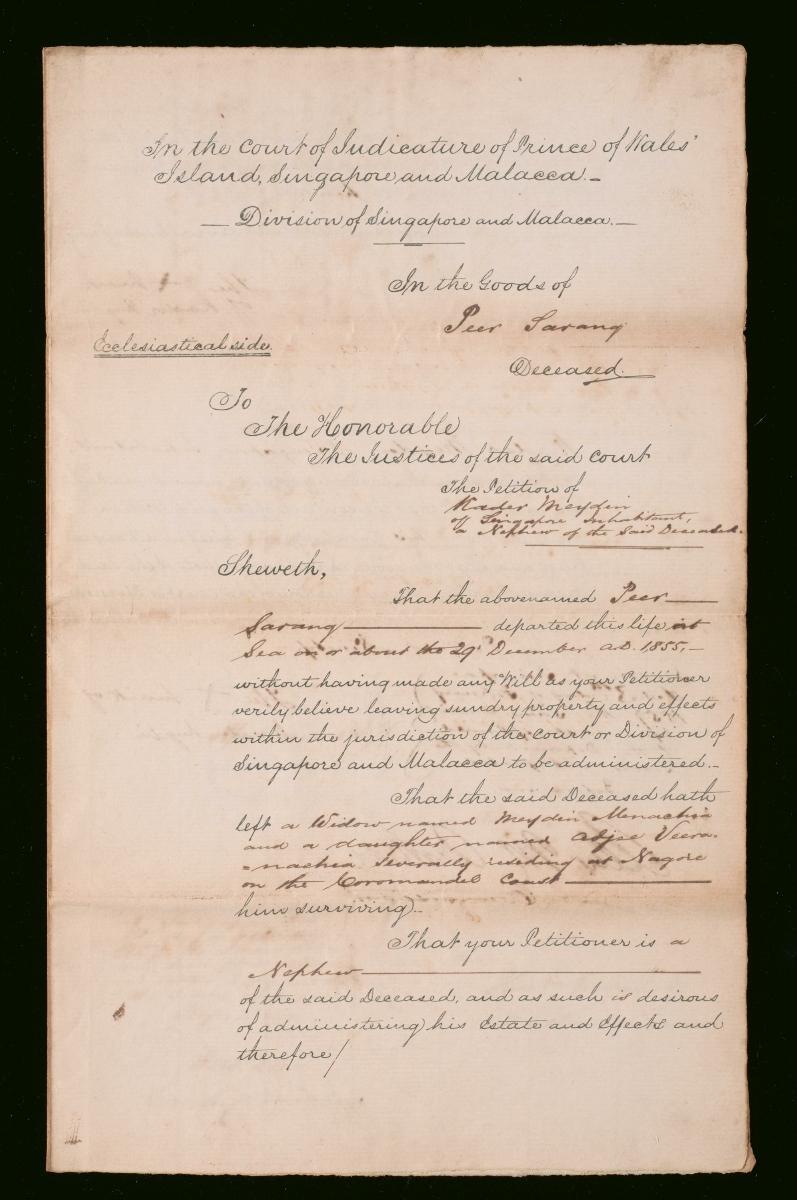 In the Court of Judicature of Prince of Wales'
Island, Singapore and Malacca.-
— Division of Singapore and Malacca.—
In the Goods of
Peer Sarang
Ecclesiastical side.
Deceased.
To
The Honorable
The Justices of the said Court
The Petition of
Kader Meydin
of Singapore Inhabitant,
a Nephew of the Said Deceased.
Sheweth,
That the abovenamed Peer
Sarang departed this life at
Sea on or about the 29 December A.D. 1855,—
without having made any Will as your Petitioner
verily believe leaving sundry property and effects
within the jurisdiction of the Court or Division of
Singapore and Malacca to be administered.-
That the said Deceased hath
left a Widow named Meydin Menachia
and a daughter named Adjee Veera-
=nachia Severally residing at Nagore
on the Coromandel Coast
him surviving.-
That your Petitioner is a
Nephew
of the said Deceased, and as such is desirous
of administering his Estate and Effects and
therefore/